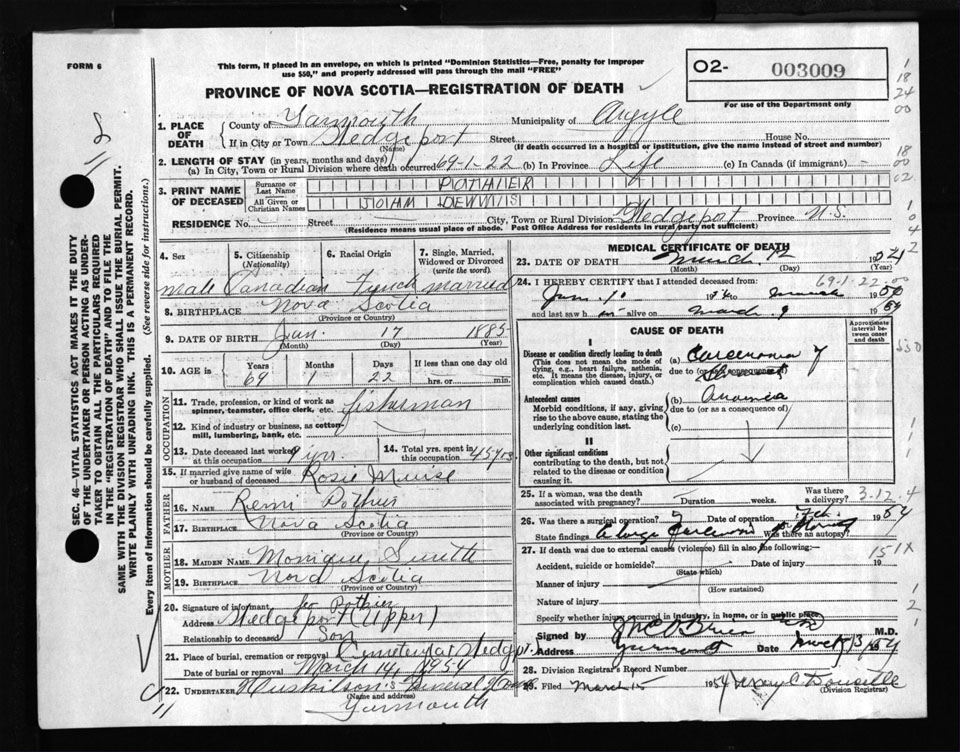 FORM 6
This form, if placed in an envelope, on which is printed "Dominion Statistics—Free, penalty for improper
use $50," and properly addressed will pass through the mail "FREE"
PROVINCE OF NOVA SCOTIA—REGISTRATION OF DEATH
O2- 003009
For use of the Department only
1. PLACE OF DEATH { County of Yarmouth Municipality of Argyle
If in City or Town Wedgeport Street House No.
(Name) (If death occurred in a hospital or institution, give name instead of street and number)
2. LENGTH OF STAY (in years, months and days)
(a) In City, Town or Rural Division where death occurred 69-1-22 (b) In Province Life (c) In Canada (if immigrant) -
3. PRINT NAME OF DECEASED
Surname or Last Name POTHIER
All Given or Christian Names DENNIS
RESIDENCE No. Street City, Town or Rural Division Wedgeport Province N.S.
(Residence means usual place of abode. Post Office Address for residents in rural parts not sufficient)
4. Sex
Male
5. Citizenship
(Nationality)
Canadian
6. Racial Origin
French
7. Single, Married,
Widowed or Divorced
(write the word)
married
8. BIRTHPLACE Nova Scotia
(Province or Country)
9. DATE OF BIRTH Jan. 17 1885
(Month) (Day) (Year)
10. AGE IS Years Months Days If less than one day old
69 1 22 hrs. or min.
OCCUPATION
11. Trade, profession, or kind of work as
spinner, teamster, office clerk, etc. fisherman
12. Kind of industry or business, as cotton-
mill, lumbering, bank, etc.
13. Date deceased last worked
at this occupation yrs.
14. Total yrs. spent in
this occupation 45 yrs.
15. If married give name of wife
or husband of deceased Rosie Muise
FATHER
16. Name Remi Pothier
17. Birthplace Nova Scotia
(Province or Country)
MOTHER
18. MAIDEN NAME Monique Smith
19. BIRTHPLACE Nova Scotia
(Province or Country)
20. Signature of informant Pothier
Address Wedgeport (Upper)
Relationship to deceased Son
21. Place of burial, cremation or removal Cemetery at Wedgeport
Date of burial or removal March 14, 1954
22. UNDERTAKER Huskilson's Funeral Home
(Name and address)
Yarmouth
11
MEDICAL CERTIFICATE OF DEATH
23. DATE OF DEATH March 12 1954
(Month) (Day) (Year)
24. I HEREBY CERTIFY that I attended deceased from: 69-1-22
Jan. 10 to March
and last saw h im alive on March 9
CAUSE OF DEATH
Approximate
interval between
onset and death
I
Disease or condition directly leading to death
(This does not mean the mode of
dying, e.g., heart failure, asthenia,
etc. It means the disease, injury, or
complication which caused death.)
(a) Carcinoma of
due to (or as a consequence)
Antecedent causes
Morbid conditions, if any, giving
rise to the above cause, stating the
underlying condition last.
(b)
due to (or as a consequence of)
(c)
II
Other significant conditions
contributing to the death, but not
related to the disease or condition
causing it.
25. If a woman, was the death
associated with pregnancy? Duration weeks. Was there a delivery? 3-12.4
26. Was there a surgical operation? Date of operation Feb. 1954
State findings Was there an autopsy?
27. If death was due to external causes (violence) fill in also the following:—
Accident, suicide or homicide? Date of injury 19
(State which)
151X
Manner of injury
(How sustained)
Nature of injury
Specify whether injury occurred in industry, in home, or in public place
Signed by O'Brien M.D.
Address Yarmouth Date March 13/54
28. Division Registrar's Record Number
29. Filed March 15 1954 Doucette
(Division Registrar)
SEC. 46—VITAL STATISTICS ACT MAKES IT THE DUTY
OF THE UNDERTAKER OR PERSON ACTING AS UNDER-
TAKER TO OBTAIN ALL THE PARTICULARS REQUIRED
IN THE "REGISTRATION OF DEATH" AND TO FILE THE
SAME WITH THE DIVISION REGISTRAR WHO SHALL ISSUE THE BURIAL PERMIT.
WRITE PLAINLY WITH UNFADING INK. THIS IS A PERMANENT RECORD.
Every item of information should be carefully supplied. (See reverse side for instructions.)